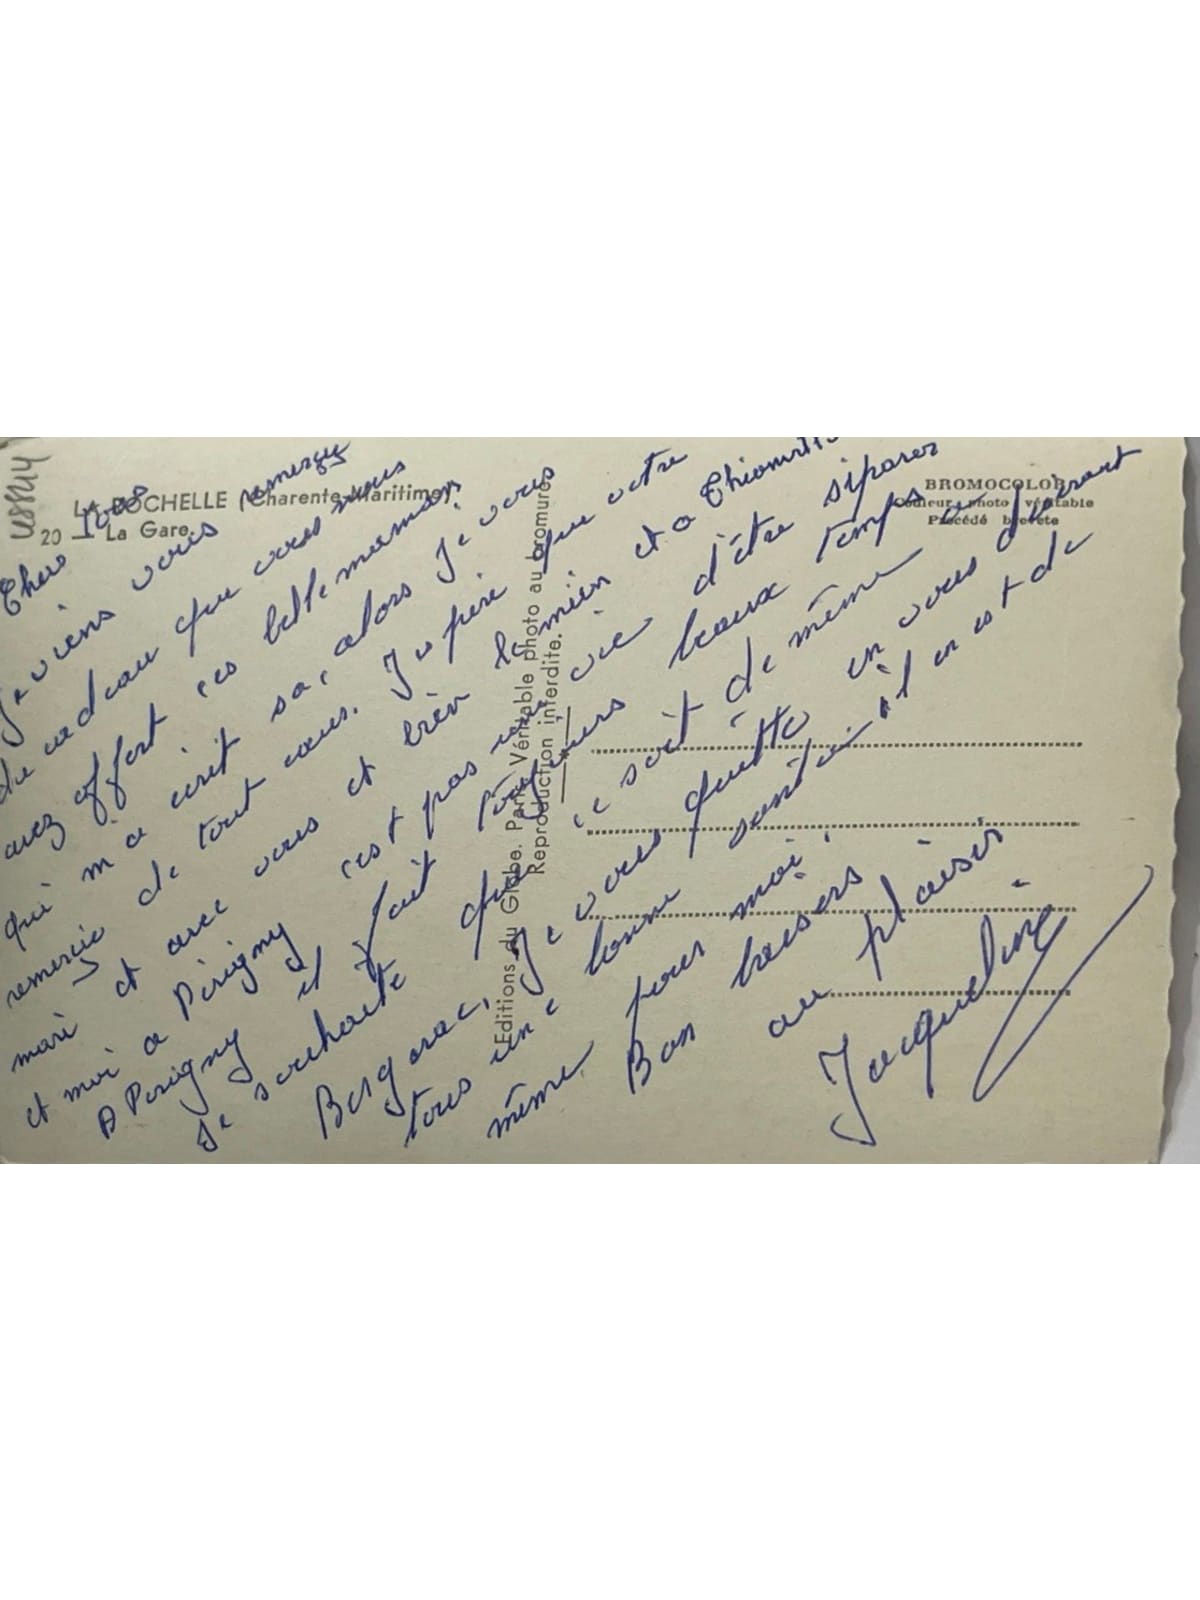 LA ROCHELLE (Charente-Maritime)
20 - La Gare
BROMOCOLOR
Couleur photo véritable
Procédé breveté
Editions du Globe. Paris Véritable photo au bromure
Reproduction interdite.
Chers Tous
Je viens vous remercier
du cadeau que vous nous
avez offert ces belle maman
qui m'a écrit sa, alors Je vous
remercie de tout cœur. J'espère que votre
mari et avec vous et bien le mien et a
et moi a Perigny c'est pas une vie d'être séparer
A Perigny il fait toujours beaux temps
Je souhaite que ce soit de même a
Bergerac, Je vous quitte en vous désirant
tous une bonne santée il en est de
même pour moi,
Bon baisers
au plaisir
Jacqueline